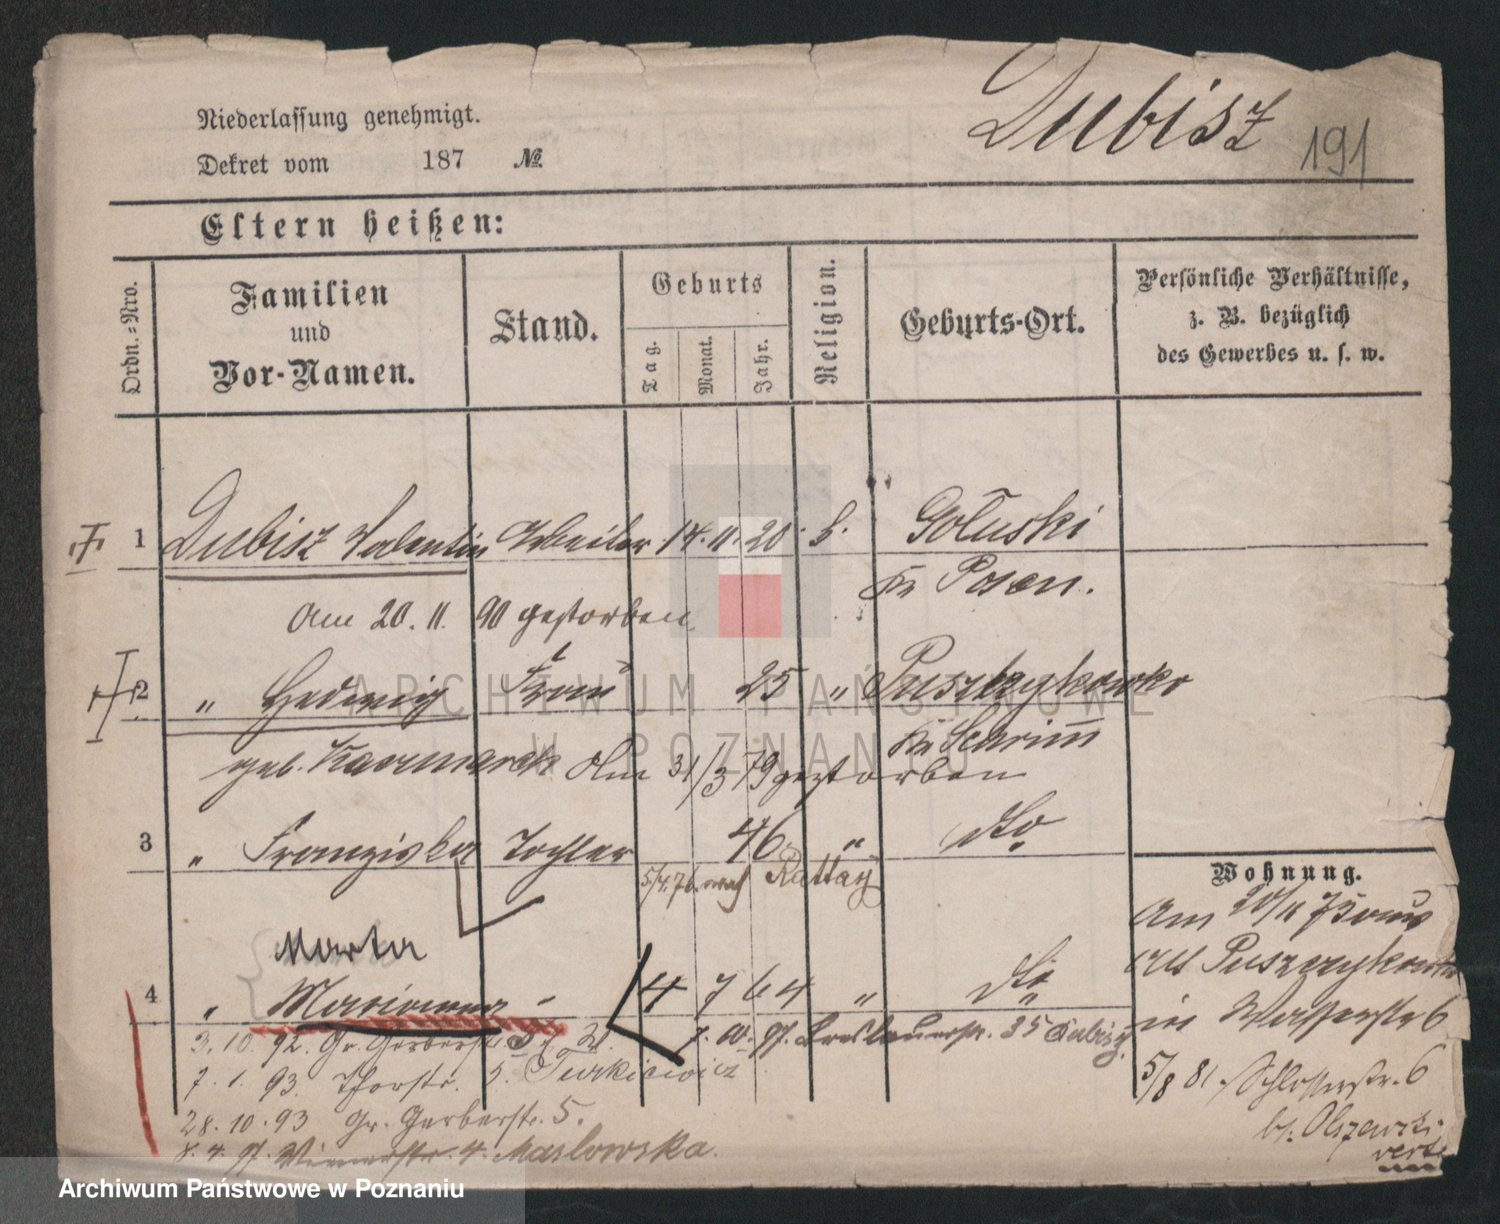 Niederlassung genehmigt.
Dubisz
191
Dekret vom 187 №
Eltern heißen:
Ordn.=Nro.
Familien
und
Vor-Namen.
Stand.
Geburts
Tag.
Monat.
Jahr.
Religion.
Geburts-Ort.
Persönliche Verhältnisse,
z. B. bezüglich
des Gewerbes u. s. w.
1 Dubisz Valentin Arbeiter 14. 11. 20. k. Gołuski
Kr Posen.
Am 20. 11. 90 gestorben
2 " Hedwig Frau 25 " Puszczykowko
Kr Schrimm
geb. Kaczmarek Am 31/3 79 gestorben
3 " Franziska Tochter 46. " dto
5/4.76. nach Rattay
Wohnung.
Am 20/11 73
aus Puszczykowko
in Wasserstr 6
5/8 81. Schlosserstr. 6
b. Olszewski
verte
Marta
4 " Marianna " 4 7 64 " dto
3. 10. 92. Gr. Gerberstr.
7. 10. 97. Breslauerstr. 35 Dubisz.
7. 1. 93. Thorstr. 5. Turkiewicz
28. 10. 93 Gr. Gerberstr. 5.
8. 4. 97. Wienerstr. 4. Maslowska.
ARCHIWUM PAŃSTWOWE
W POZNANIU
Archiwum Państwowe w Poznaniu